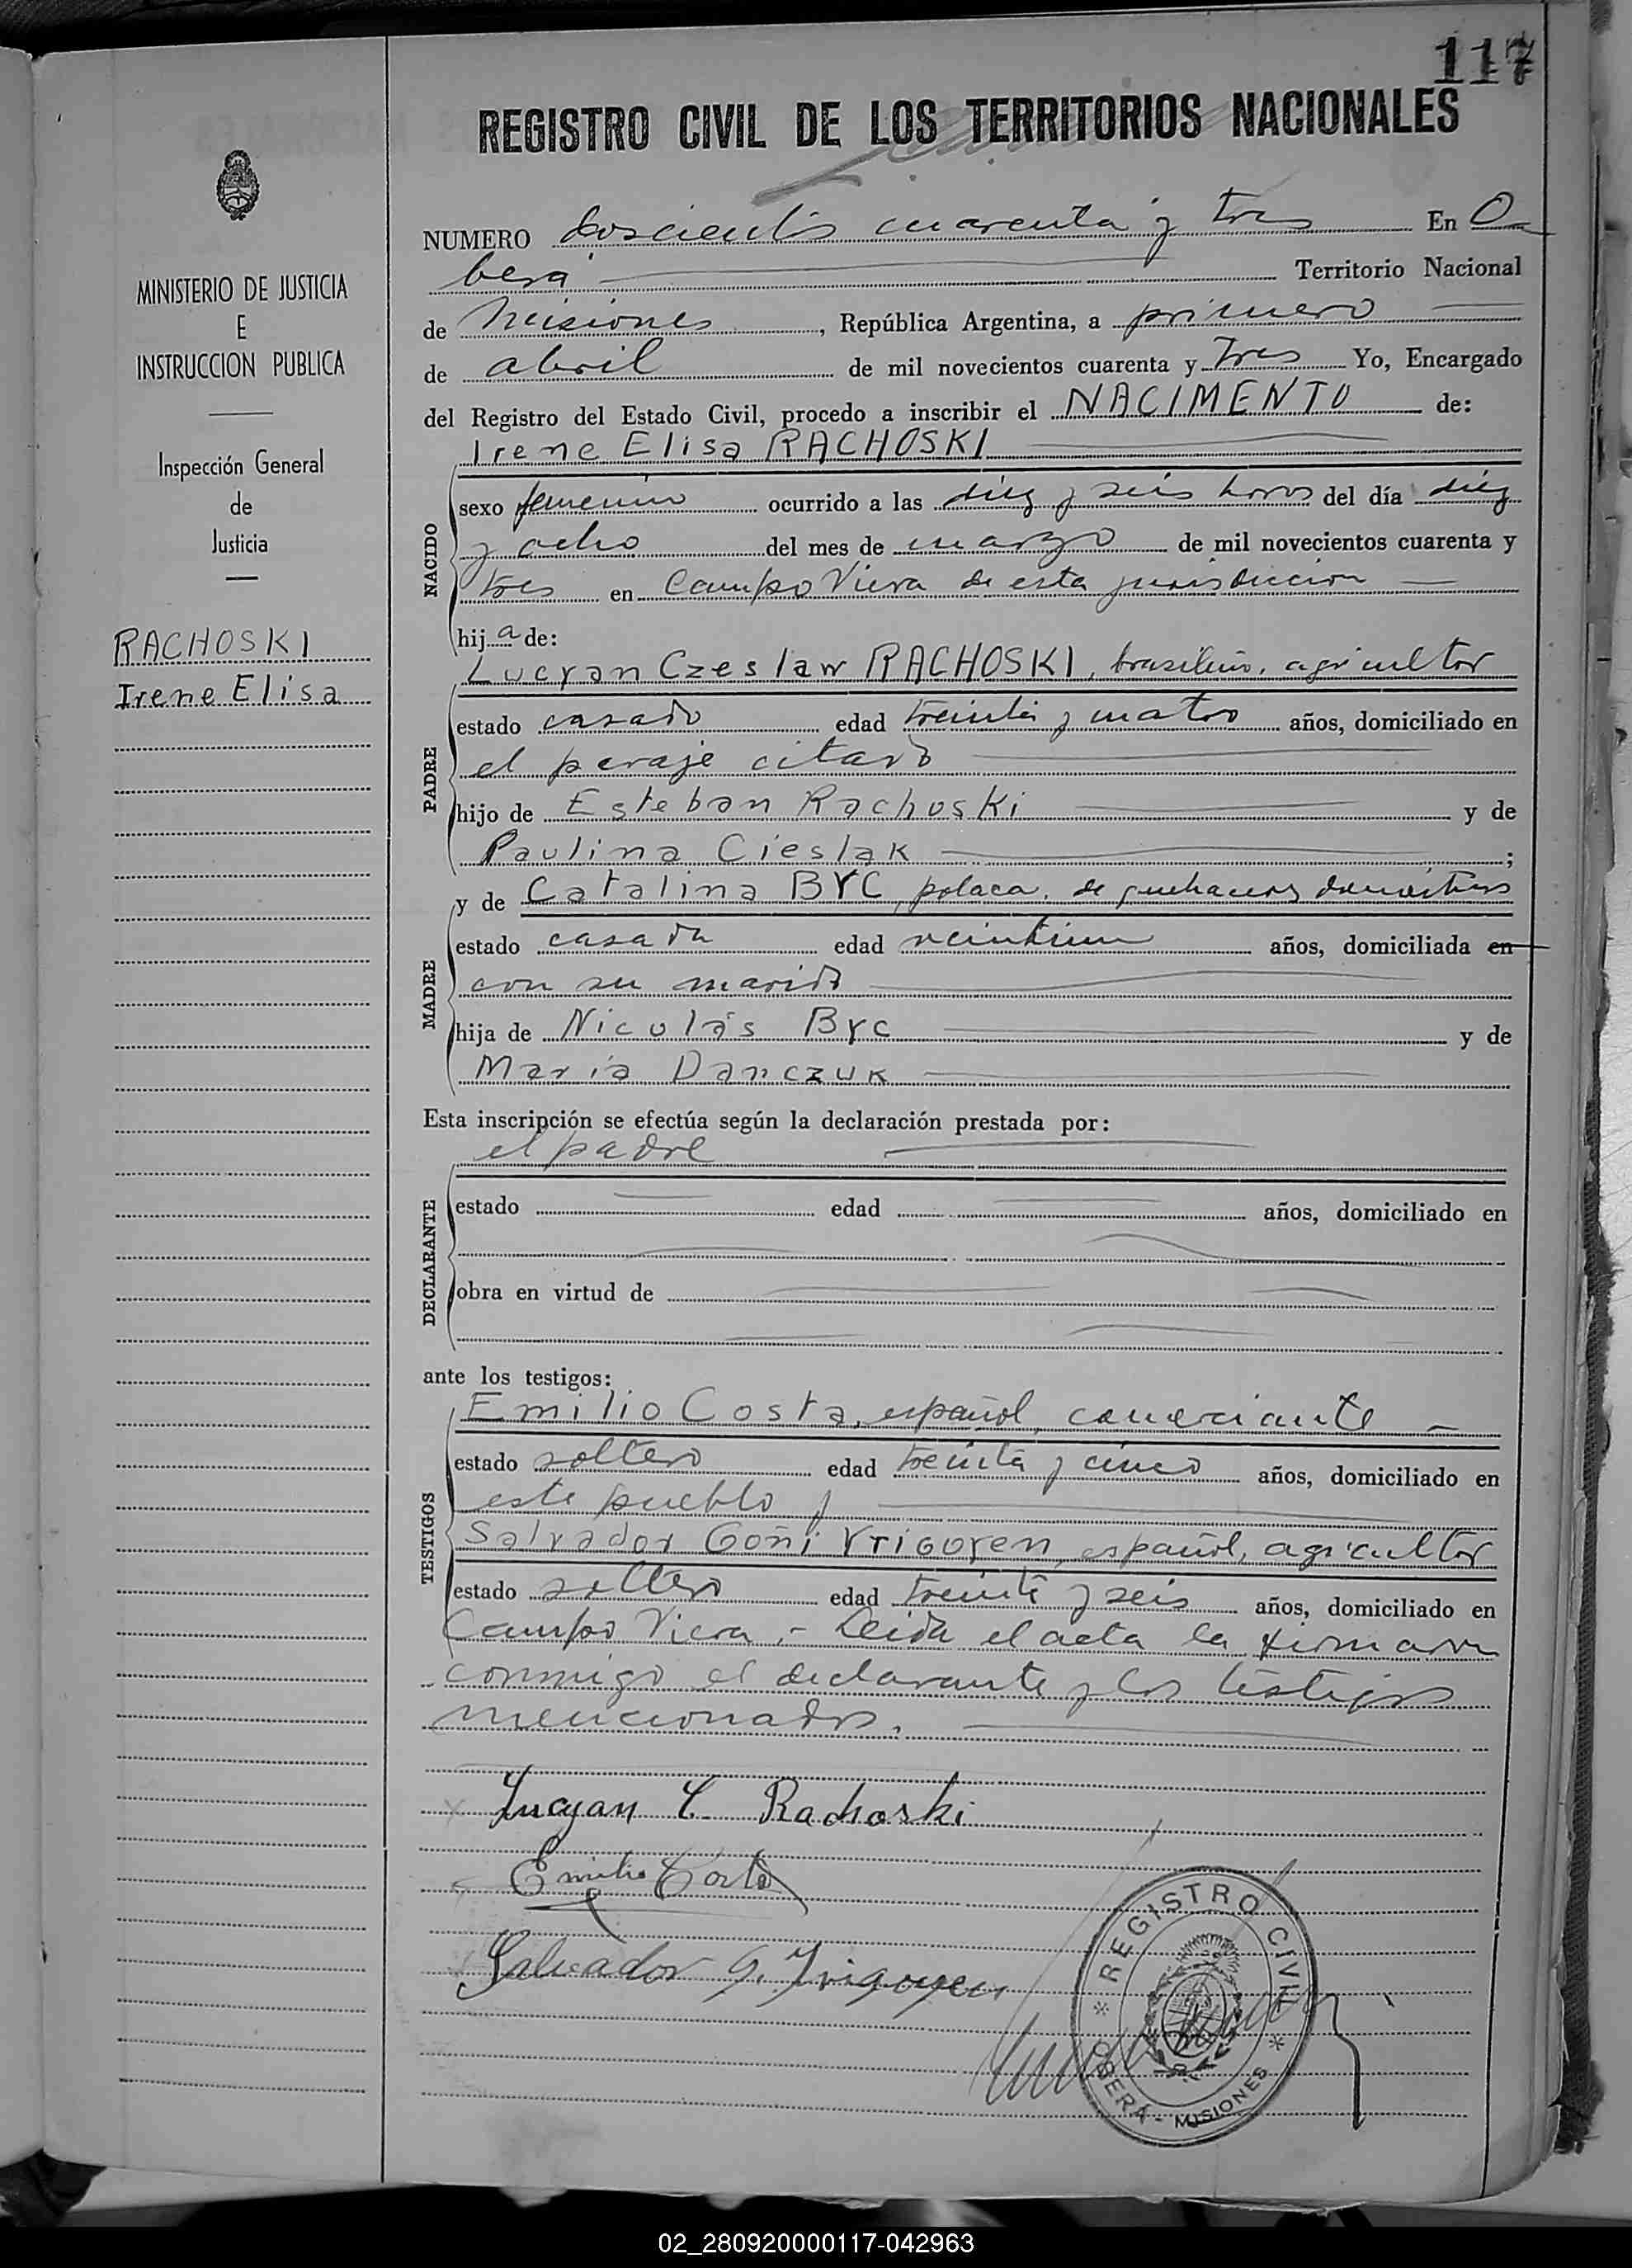 117
REGISTRO CIVIL DE LOS TERRITORIOS NACIONALES
MINISTERIO DE JUSTICIA
E
INSTRUCCION PUBLICA
Inspección General
de
Justicia
RACHOSKI
Irene Elisa
NUMERO doscientos cuarenta y tres En O
berá Territorio Nacional
de Misiones, República Argentina, a primero
de abril de mil novecientos cuarenta y tres Yo, Encargado
del Registro del Estado Civil, procedo a inscribir el NACIMENTO de:
Irene Elisa RACHOSKI
NACIDO
sexo femenino ocurrido a las diez y seis horas del día diez
y ocho del mes de marzo de mil novecientos cuarenta y
tres en Campo Viera de esta jurisdicción
hija de:
PADRE
Lucyan Czeslaw RACHOSKI, brasileño, agricultor
estado casado edad treinta y cuatro años, domiciliado en
el paraje citado
hijo de Esteban Rachoski y de
Paulina Cieslak ;
MADRE
y de Catalina BYC, polaca, de quehaceres domésticos
estado casada edad veintiun años, domiciliada en
con su marido
hija de Nicolás Byc y de
María Danczuk
Esta inscripción se efectúa según la declaración prestada por:
el padre
DECLARANTE
estado edad años, domiciliado en
obra en virtud de
ante los testigos:
TESTIGOS
Emilio Costa, español, comerciante
estado soltero edad treinta y cinco años, domiciliado en
este pueblo y
Salvador Goñi YRIGOYEN, español, agricultor
estado soltero edad treinta y seis años, domiciliado en
Campo Viera.- Leida el acta la firmaron
conmigo el declarante y los testigos
mencionados.
Lucyan C. Rachoski
Emilio Costa
Salvador G. Yrigoyen
REGISTRO CIVIL
OBERÁ - MISIONES
02_280920000117-042963